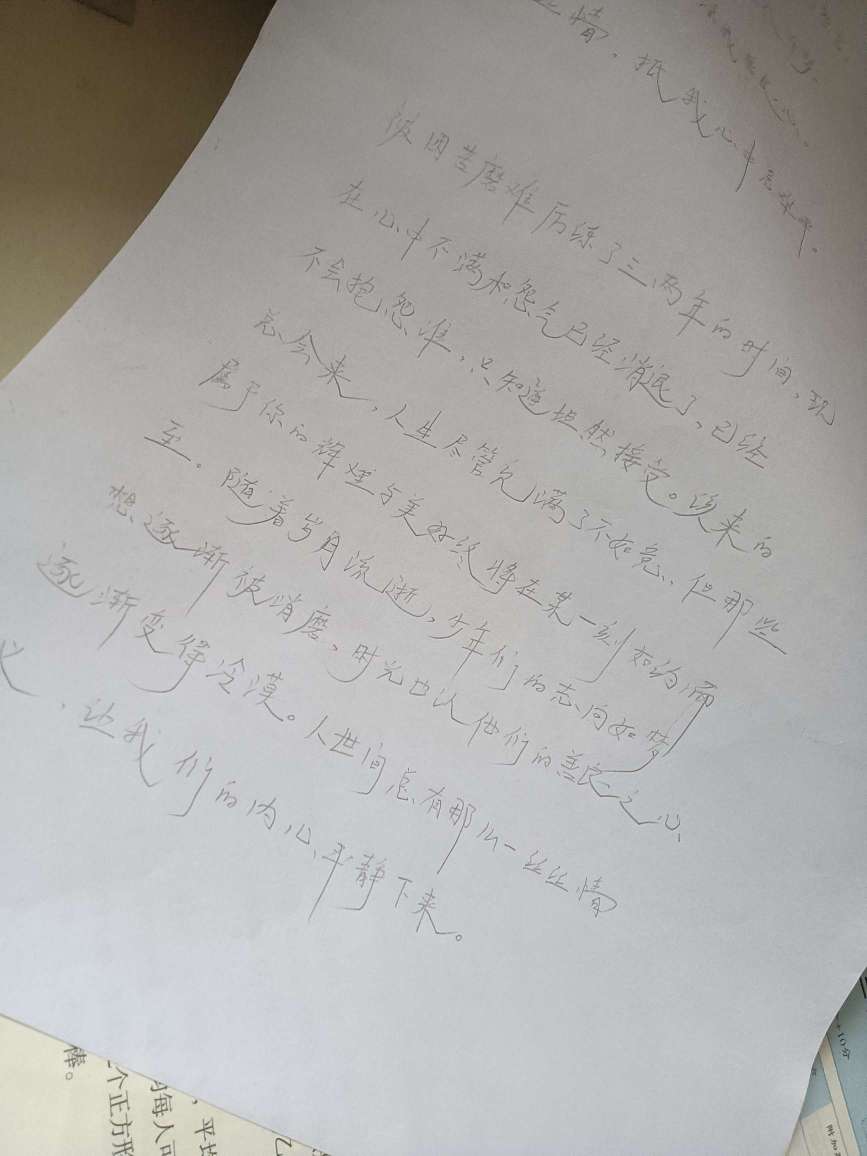 丝情，抵我心中意难平。
被困苦磨难历练了三两年的时间，现
在心中不满和怨气已经消泯了，已经
不会抱怨谁，只知道坦然接受。该来的
总会来，人生尽管充满了不如意，但那些
属于你的辉煌与美好终将在某一刻如约而
至。随着岁月流逝，少年们的志向如梦
想逐渐被消磨，时光也让他们的善良之心
逐渐变得冷漠。人世间总有那么一丝丝情
义，让我们的内心平静下来。
棒。
个正方形
每人
，平均
+10分
附加